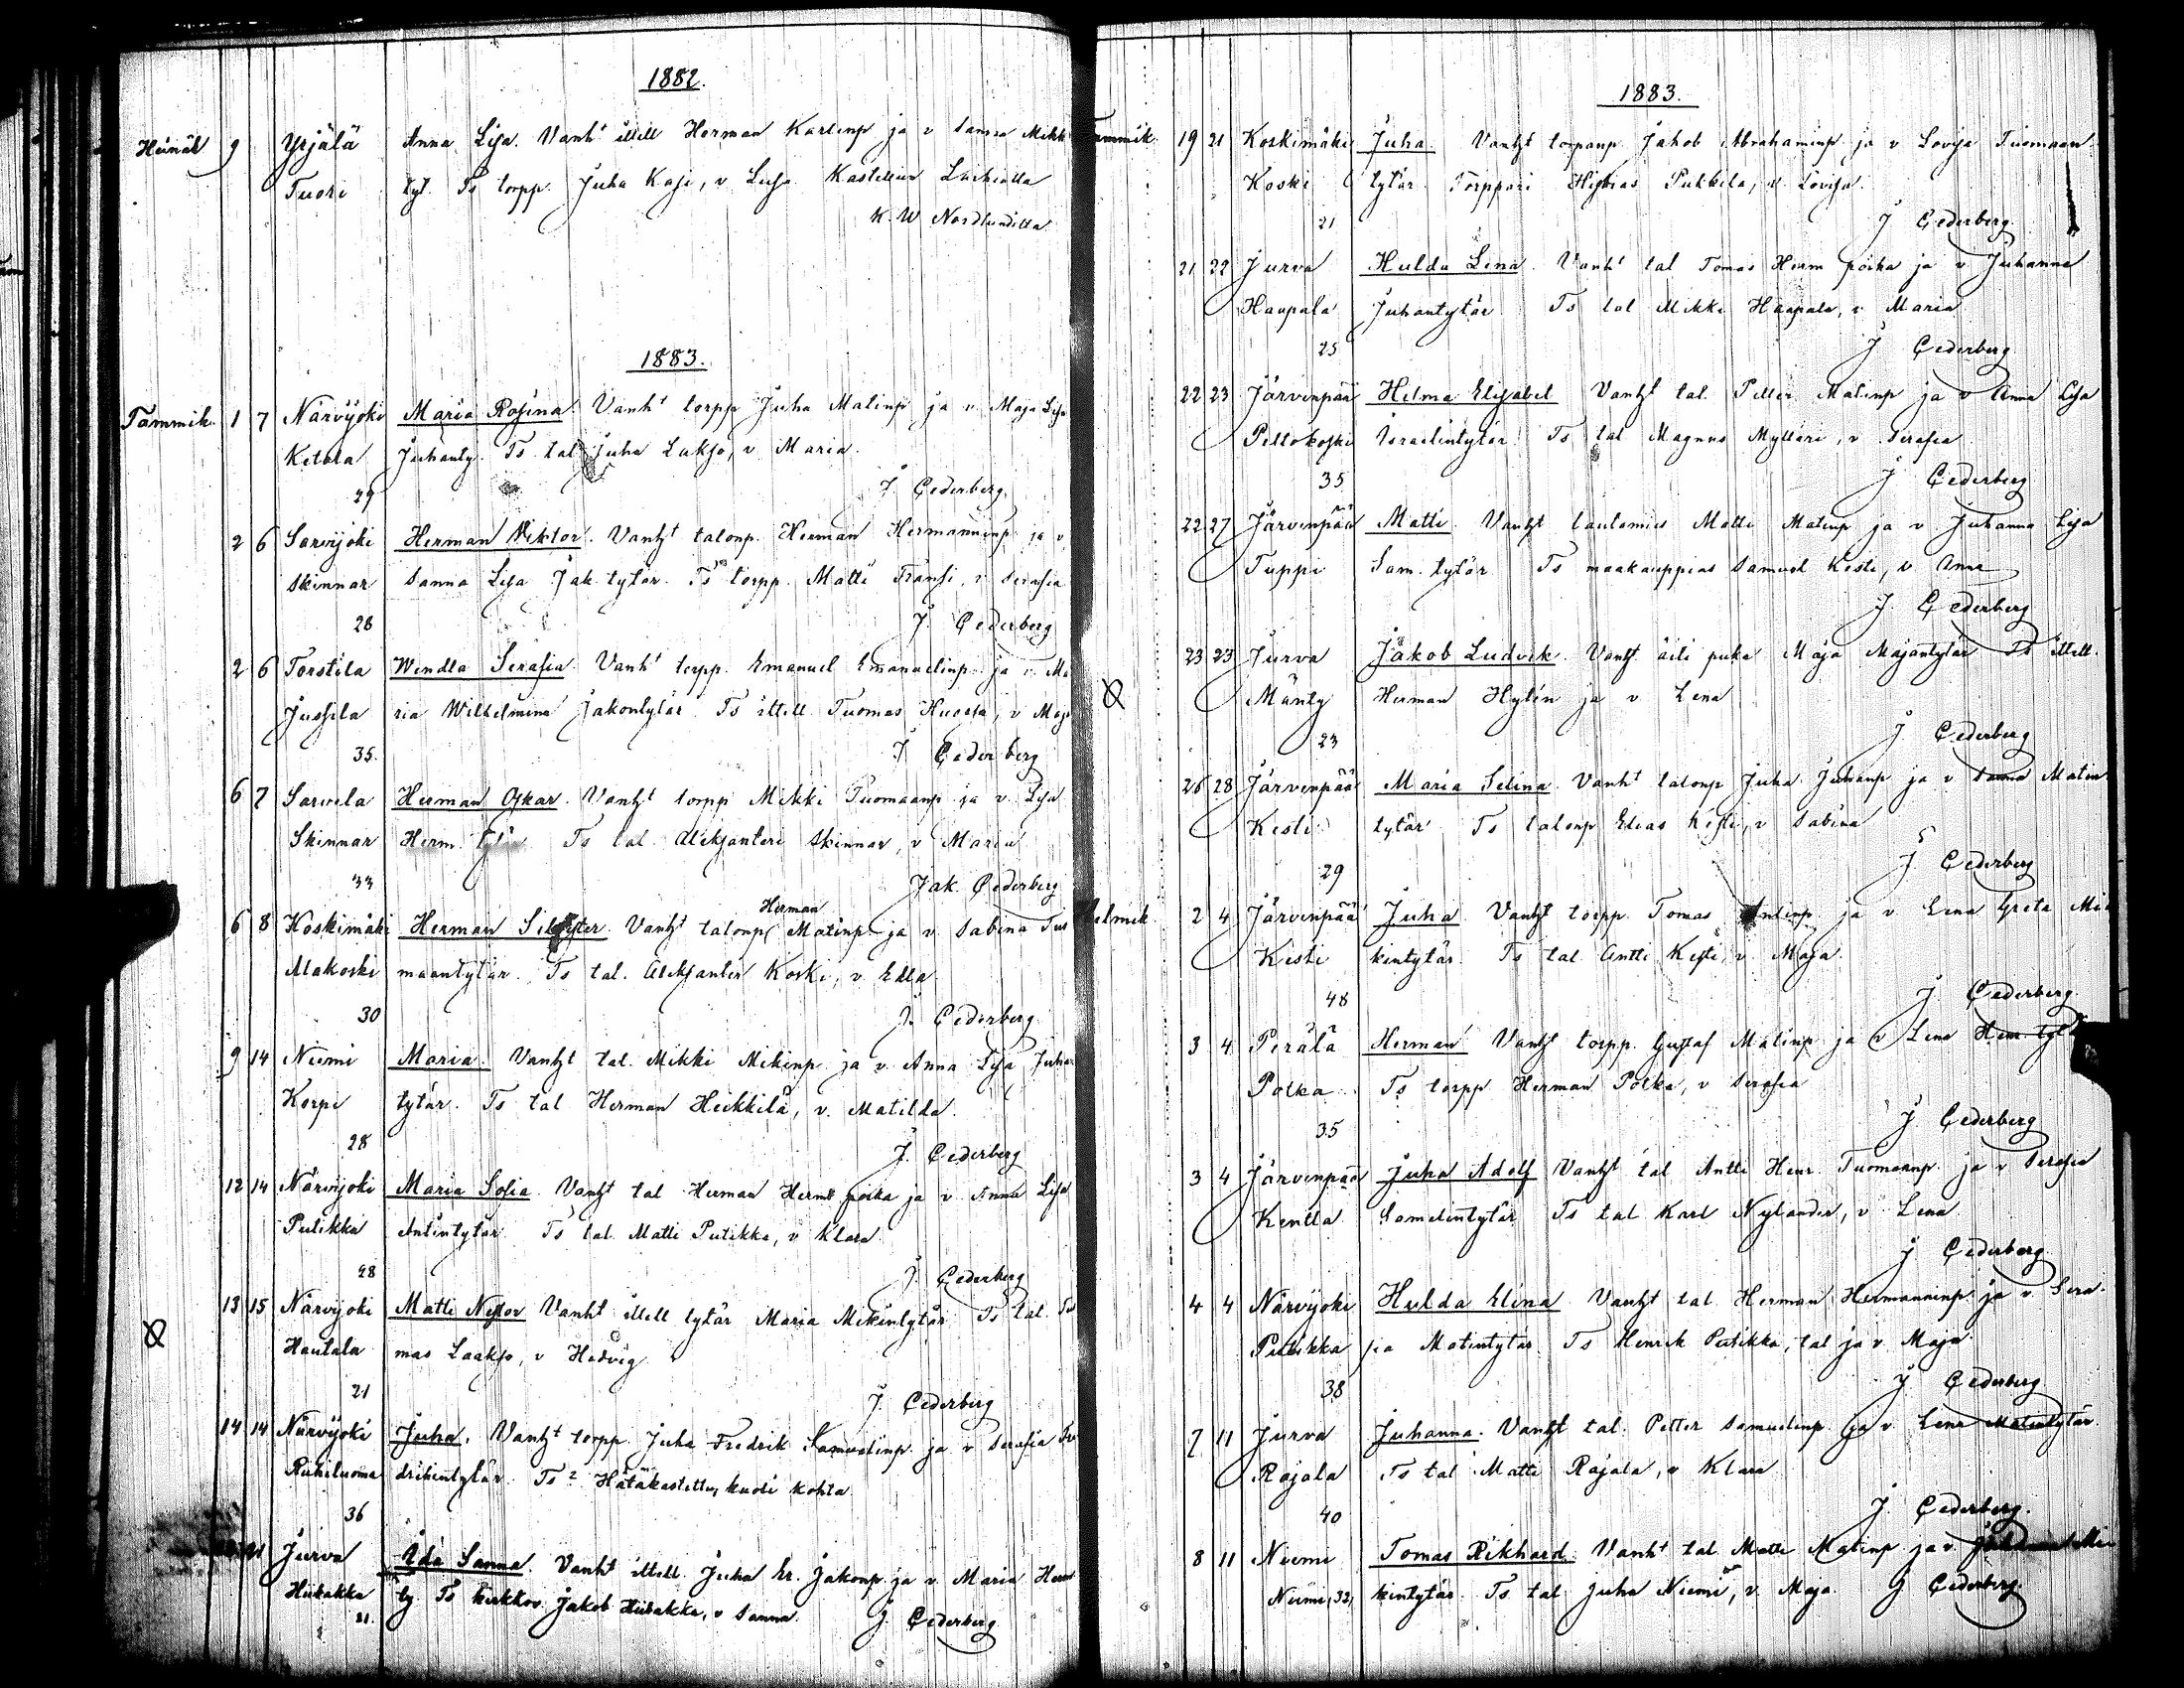 1882.
Heinäk 9 Yrjälä Anna Lisa. Vanht ittell Herman Karlinp ja v Sanna Mikk
Tuori tyt. Ts torpp. Juha Kasi, v Lisa Kastettiin Laihialla
K. W Nordlundilta
1883.
Tammik. 1 7 Närvijoki Maria Rosina. Vanht torpp Juha Matinp ja v. Maja Lisa
Ketola Juhanty. Ts tal Juha Lakso, v Maria.
29 J. Cederberg
2 6 Sarvijoki Herman Viktor. Vanht talonp. Herman Hermanninp ja v
Skinnar Sanna Lisa Jak. tytär. Ts torpp. Matti Fransi, v Serafia
28 J. Cederberg
2 6 Torstila Wendla Serafia. Vanht torpp. Emanuel Emanuelinp ja v. Ma
Jussila ria Wilhelmina Jakontytär. Ts ittell Tuomas, v Maja
35. J Cederberg
6 7 Sarvela Herman Oskar. Vanht torpp Mikki Tuomaanp ja v. Lisa
Skinnar Herm. tytär Ts tal. Aleksanteri Skinnar, v Maria
33 Jak. Cederberg
Herman
6 8 Koskimäki Herman Silvester. Vanht talonp Matinp ja v. Sabina Tuo
Alakoski maantytär. Ts tal. Aleksanter Koski, v Edla.
30 J. Cederberg
9 14 Niemi Maria. Vanht tal. Mikki Mikinp ja v. Anna Lisa Juha
Korpi tytär. Ts tal Herman Heikkilä, v. Matilda.
28 J. Cederberg
12 14 Närvijoki Maria Sofia. Vanht tal Herman Herm poika ja v. Anna Lisa
Putikka Antintytär Ts tal. Matti Putikka, v Klara
28 J. Cederberg
13 15 Närvijoki Matti Nestor Vanht ittell tytär Maria Mikintytär Ts tal. Tuo
Hautala mas Laakso, v Hedvig
21 J Cederberg
14 14 Närvijoki Juha. Vanht torpp. Juha Fredrik Samuelinp ja v Serafia Fre
drikintytär. Ts Hätäkastettu, kuoli kohta
36
21 Jurva Ida Sanna. Vanht ittell. Juha Er. Jakonp ja v. Maria Herm
Hiibakka ty Ts kirkkov. Jakob Hiibakka, v Sanna.
21. J Cederberg
1883.
Tammik. 19 21 Koskimäki Juha. Vanht torpanp Jakob Abrahaminp ja v Lovisa Tuomaan
Koski tytär Torppari Pukkila, v. Lovisa.
21 J Cederberg
21 22 Jurva Hulda Lina. Vanht tal Tomas Herm poika ja v Juhanna
Haapala Juhantytär Ts tal Mikki Haapala, v Maria
25 J Cederberg
22 23 Järvenpää Helma Elisabet Vanht tal. Petter Matinp ja v Anna Lisa
Peltokoski Israelintytär. Ts tal Magnus Mylläri, v Serafia
35 J Cederberg
22 27 Järvenpää Matti. Vanht lautamies Matti Matinp ja v Juhanna Lisa
Tuppi Sam. tytär Ts maakauppias Samuel Kesti, v Anna
J. Cederberg
23 23 Jurva Jakob Ludvik. Vanht. äiti piika Maja Majantytär Ts ittell.
Mänty Herman Hytin ja v Lena
23 J Cederberg
26 28 Järvenpää Maria Selina. Vanht talonp Juha Juhanp ja v Sanna Matin
Kesti tytär Ts talonp Elias Kesti, v Sabina
29 J Cederberg
Helmik. 2 4 Järvenpää Juha Vanht torpp. Tomas Antinp ja v Lena Greta Mi
Kesti kintytär. Ts tal Antti Kesti, v Maja.
48 J Cederberg.
3 4 Perälä Herman Vanht torpp. Gustaf Matinp ja v Lena Herm tyt
Potka Ts torpp Herman Potka, v Serafia
35 J Cederberg
3 4 Järvenpää Juha Adolf Vanht tal Antti Henr. Tuomaanp ja v Serafia
Kentta Samelintytär Ts tal Karl Nylander, v Lena
J Cederberg
4 4 Närvijoki Hulda Elina Vanht tal Herman Hermanninp ja v Sera-
Putikka fia Matintytär Ts Henrik Putikka, tal ja v. Maja
38 J Cederberg
7 11 Jurva Juhanna. Vanht tal. Petter Samuelinp ja v. Lena Matintytär.
Rajala Ts tal Matti Rajala, v Klara
40 J Cederberg.
8 11 Niemi Tomas Rikhard. Vanht tal Matti Matinp ja v.
Niemi, 32, kintytär. Ts tal Juha Niemi, v. Maja. J Cederberg.